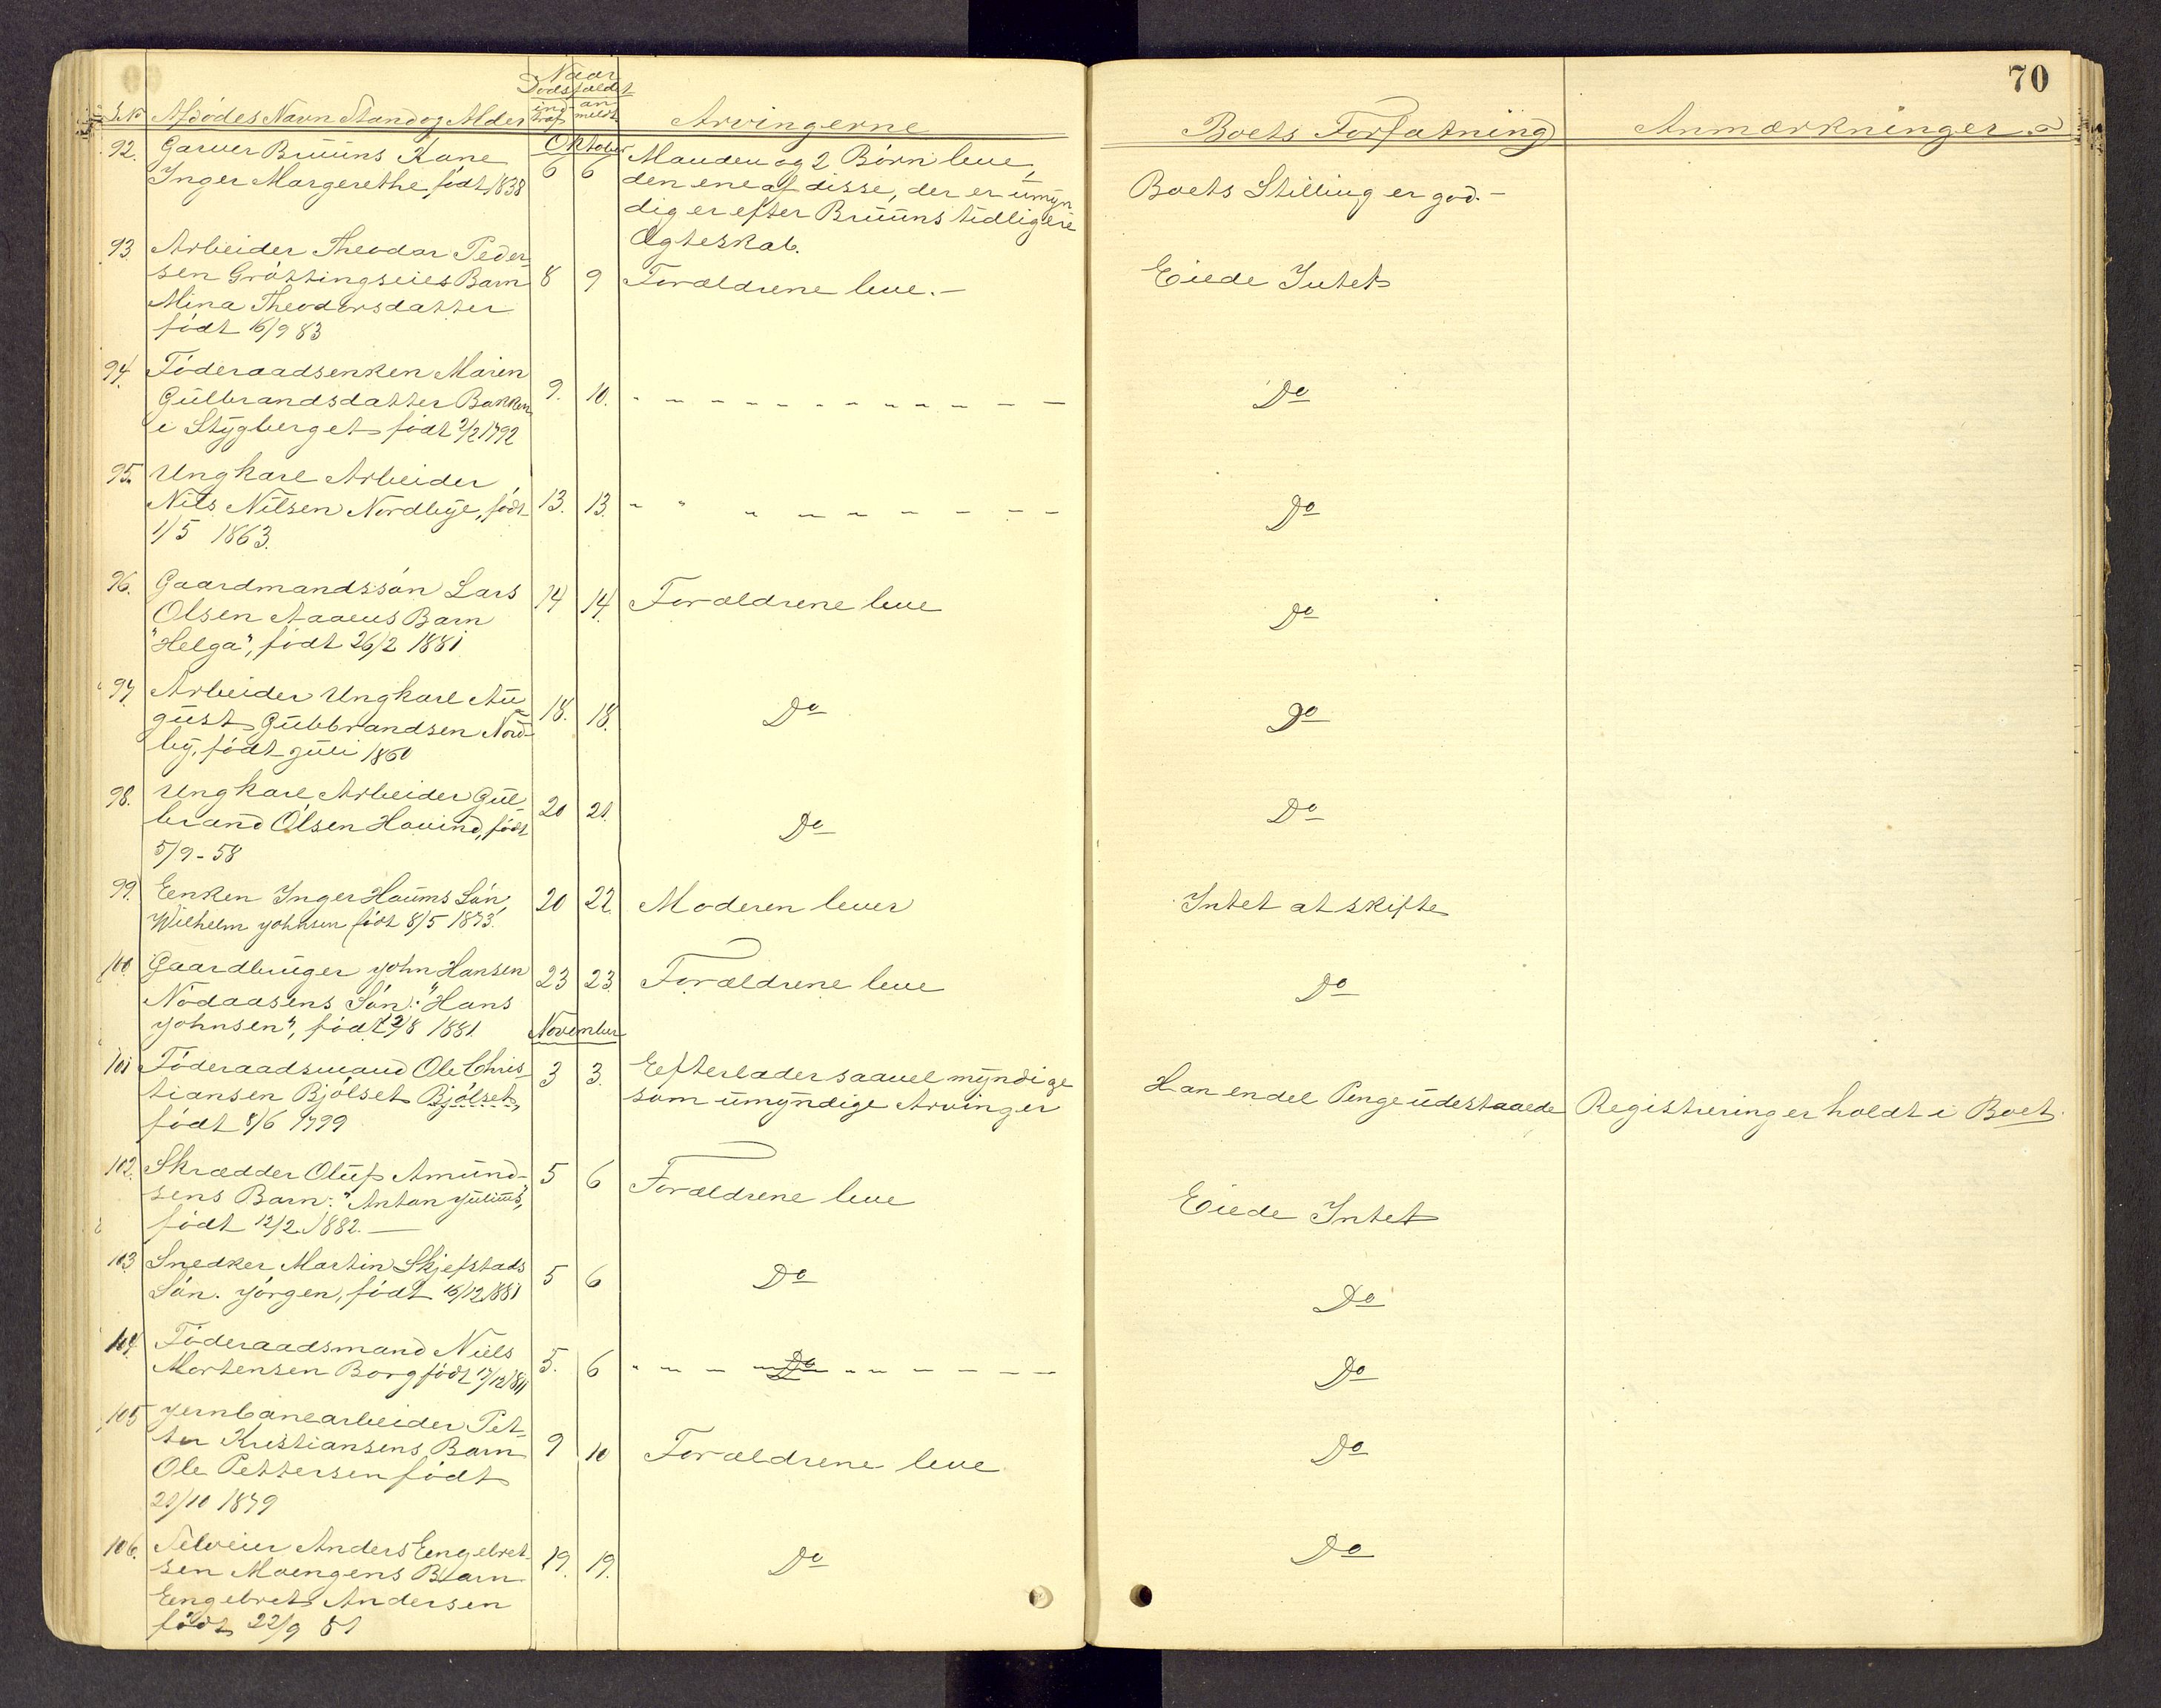 70
Naar
Dødsfaldet
L.No Afdødes Navn Stand og Alder ind- traf an- meldt Arvingerne Boets Forfatning Anmærkninger.
Oktober
92. Garver Bruuns Kone 6 6 Manden og 2 Børn leve,
Inger Margerethe født 1838 den ene af disse, der er umyn Boets Stilling er god.-
dig er efter Bruuns tidligere
Ægteskab.
93. Arbeider Theodor Peder-
sen Grøttingseies Barn 8 9 Forældrene leve.- Eiede Intet
Mina Theodorsdatter
født 16/9 83
94. Føderaadsenken Maren
Gulbrandsdatter Bakken 9. 10. - - - - - - - - - - Do
i Stygberget født 2/2 1792
95. Ungkarl Arbeider
Nils Nilsen Nordbye, født 13. 13. - - - - - - - - - Do
1/5 1863.
96. Gaardmandssøn Lars 14 14. Forældrene leve Do
Olsen Aaaeus Barn
"Helga", født 26/2 1881
97. Arbeider Ungkarl Au-
gust Gulbbrandsen Nord- 18. 18. Do Do
by, født Juli 1860
98. Ungkarl Arbeider Gul- 20 21. Do
brand Olsen Hovind, født Do
5/9-58
99. Eenken Inger Haums Søn, 20 22. Moderen lever Intet at skifte
Wilhelm Johnsen født 8/5 1873.
100. Gaardbruger John Hansen 23 23. Forældrene leve Do
Nødaasens Søn: "Hans
Johnsen", født 12/8 1881.
November
101 Føderaadsmand Ole Chris- 3 3. Eefterlader saavel myndige
tiansen Bjølset Bjølset, som umyndige Arvinger Har endel Penge udestaaede Registrering er holdt i Boet.
født 8/6 1799
102. Skrædder Oluf Amund- 5 6 Forældrene leve
sens Barn: "Anton Julius", Eiede Intet
født 12/2 1882.-
103 Snedker Martin Skjefstads 5 6 Do
Søn. Jørgen, født 16/12 1881 Do
104. Føderaadsmand Niels
Mortensen Borg født 17/12 1811 5. 6 - - - - Do - - - - - - Do
105 Jernbanearbeider Pet-
ter Kristiansens Barn 9 10 Forældrene leve Do
Ole Pettersen født
21/10 1879
106. Selveier Anders Eengebret- 19. 19. Do Do
sen Moengens Barn
Eengebret Andersen
født 22/9 81